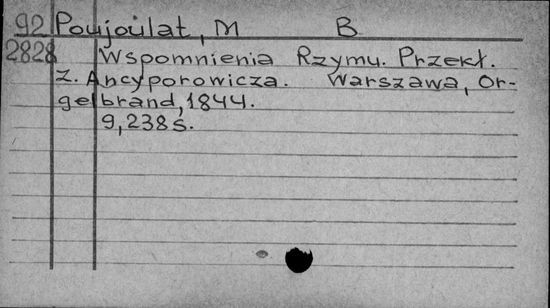 92 Poujoulat, M B
2828 Wspomnienia Rzymu. Przekł.
Z. Ancyporowicza. Warszawa, Or-
gelbrand, 1844.
9, 238 s.